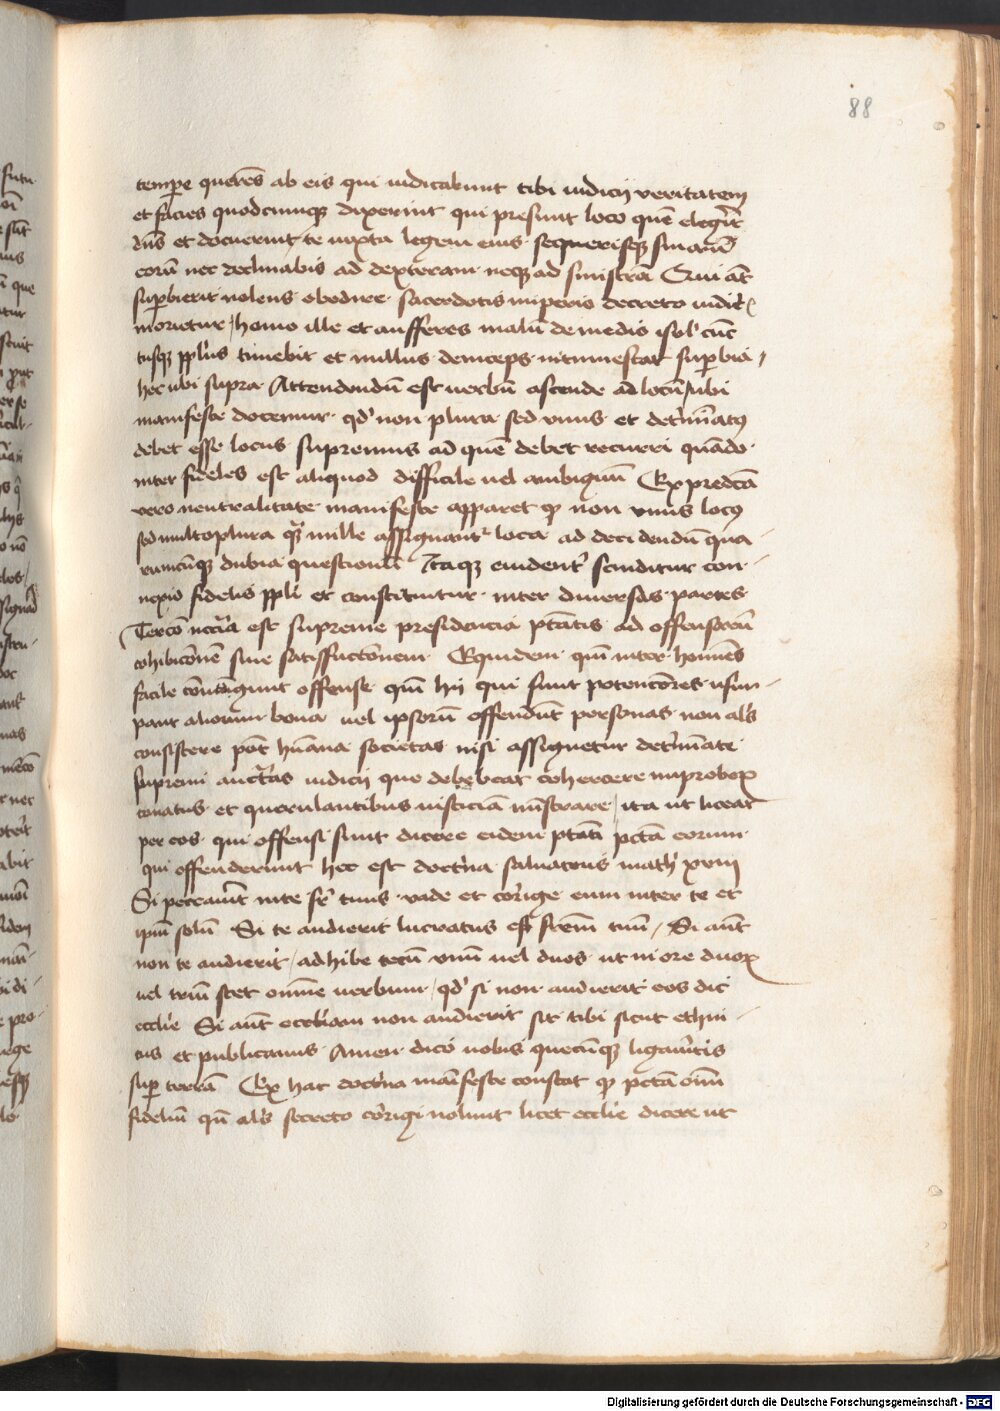 88
temp̲e querẽs ab eis qui iudicabunt tibi iudicij veritatem
et facies quodcumqꝫ dixerint qui presunt loco quẽ elegẽit
dñs et docuerint te iuxta legem eius sequerisqꝫ sm̃aꝫ
eorũ nec declinabis ad dexteram neqꝫ ad sinistrã Qui aũt
suꝑbierit nolens obedire sacerdotis imperio decreto iudicꝭ
morietur / homo ille et aufferes malũ de medio isrl' cũc
tusqꝫ ppl'us timebit et nullus deinceps intumescat suꝑbia /
hec ubi supra Attendendũ est uerbũ ascende ad locũ / ubi
manifeste docemur qđ non plura sed vnus et det'mĩatꝰ
debet esse locus supremus ad quẽ debet recurri quãdo
inter fideles est aliquod difficile uel ambiguũ Ex predcã
vero neutralitate manifeste apparet ꝙ non vnus locꝰ
sed multo plura qꝫ mille assignant' loca ad deci dendũ qua-
rumcũqꝫ dubia questionũ Itaqꝫ euident' scinditur con-
nexio fidelis ppl'i et constituitur inter diuersas partes
Tercõ nec̃cia est supreme presidencia ptãtis ad offensarũ
cohibicõnem siue satisfactõnem Equidem qm̃ inter homĩes
facile cõntĩgunt offense qm̃ hij qui sunt potenciores usur-
pant aliorum bona uel ipsorũ offendũt personas non al's
consistere põt hũana societas nisi assignetur det'mĩate
supremi auct'tas iudicij que debebeat cohercere improboꝝ
conatus et querulantibus iusticiã mĩstrare / ita ut liceat
per eos qui offensi sunt dicere eidem ptãti pctã eorum
qui offenderunt hec est doctrĩa saluatoris math' xviij
Si peccauit inte fr̃ tuus vade et corĩge eum inter te et
ip̃m solũ Si te audierit lucratus es frẽm tuũ / Si aũt
non te audierit / adhibe tecũ vnũ uel duos ut in ore duoꝝ
uel triũ stet omne uerbum / qđ si non audierit eos dic
eccl'ie Si aũt eccl'iam non audierit sit tibi sicut ethni-
cus et publicanus Amen dico uobis quecũqꝫ ligauĩtis
suꝑ terrã Ex hac doctrĩa manĩfeste constat ꝙ pctã oim̃
fideliũ qũ al's secreto corĩgi nolunt licet eccl'ie dicere ut
Digitalisierung gefördert durch die Deutsche Forschungsgemeinschaft - DFG